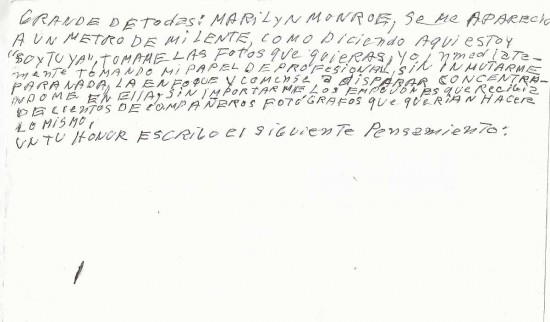 GRANDE DE todas: MARILYN MONROE, se me APARECIO
A UN METRO DE MI LENTE, COMO DICIENDO AQUI ESTOY
"SOY TU YA", TOMAME LAS FOTOS que quieras, yo, nmediata-
mente TOMANDO MI PAPEL DE PROFESIONAL, SIN INMUTARME
PARA NADA, LA ENFOQUE y COMENSE A DISPARAR CONCENTRA-
NDOME EN ELLA, y SIN IMPORTARME LOS EMPUJONES que RECIBIA
DE CIENTOS DE COMPAÑEROS FOTÓGRAFOS que querIAN HACER
LO MISMO,
UN TU HONOR ESCRIBO el siguiente Pensamiento: